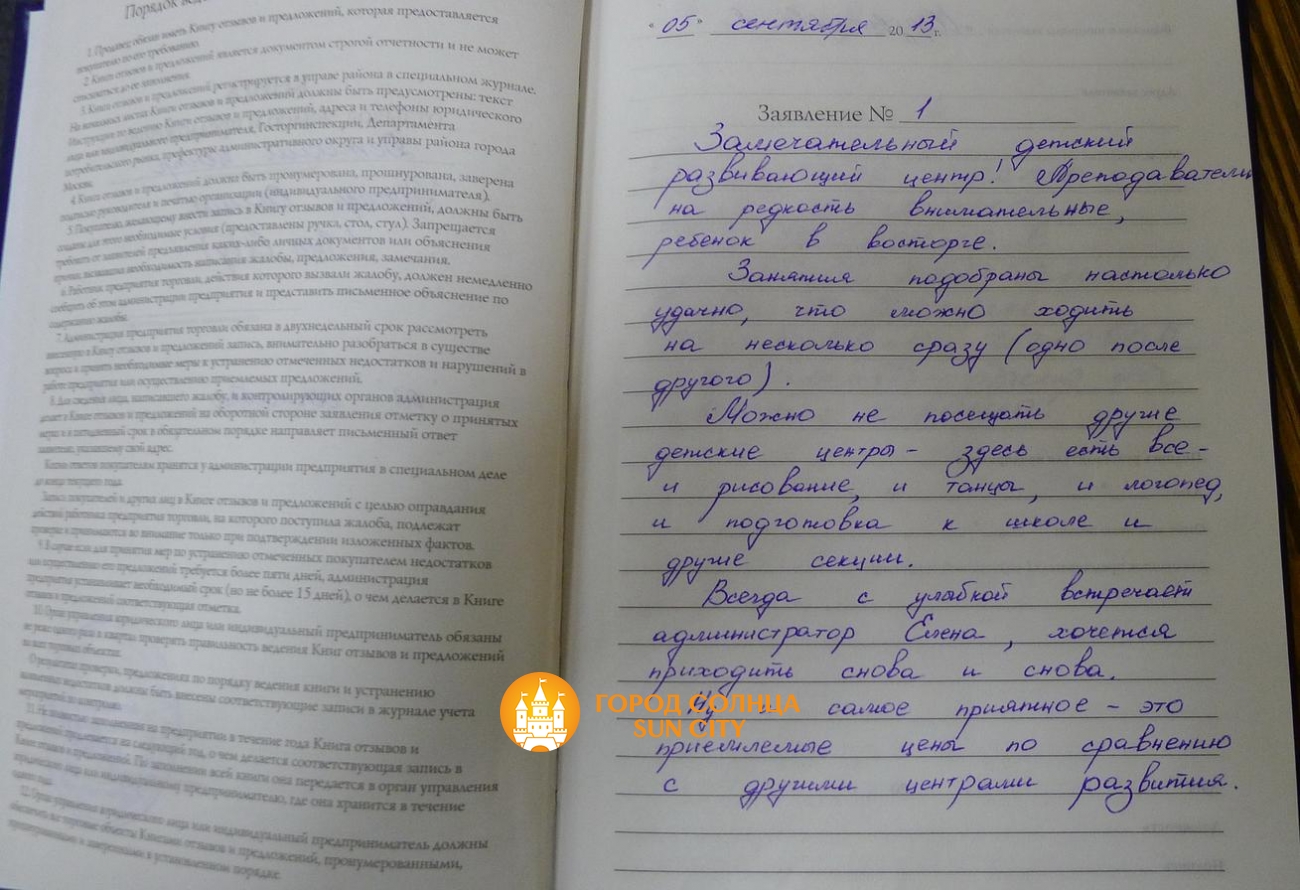 Порядок
1. Продавец обязан иметь Книгу отзывов и предложений, которая предоставляется
покупателю по его требованию.
2. Книга отзывов и предложений является документом строгой отчетности и не может
3. Книга отзывов и предложений регистрируется в управе района в специальном журнале.
На Книги отзывов и предложений должны быть предусмотрены: текст
Инструкции по ведению Книги отзывов и предложений, адреса и телефоны юридического
лица или индивидуального предпринимателя, Госторгинспекции, Департамента
потребительского рынка, префектуры административного округа и управы района города
Москвы.
4. Книга отзывов и предложений должна быть пронумерована, прошнурована, заверена
подписью руководителя и печатью организации (индивидуального предпринимателя).
5. Покупателю, желающему внести запись в Книгу отзывов и предложений, должны быть
созданы для этого необходимые условия (предоставлены ручка, стол, стул). Запрещается
требовать от заявителей предъявления каких-либо личных документов или объяснения
причин, вызвавших необходимость написания жалобы, предложения, замечания.
6. Работник предприятия торговли, действия которого вызвали жалобу, должен немедленно
сообщить об этом администрации предприятия и представить письменное объяснение по
содержанию жалобы.
7. Администрация предприятия торговли обязана в двухнедельный срок рассмотреть
внесенную в Книгу отзывов и предложений запись, внимательно разобраться в существе
вопроса и принять необходимые меры к устранению отмеченных недостатков и нарушений в
работе предприятия или осуществлению приемлемых предложений.
8. Для сведения лица, написавшего жалобу, и контролирующих органов администрация
делает в Книге отзывов и предложений на оборотной стороне заявления отметку о принятых
мерах и в пятидневный срок в обязательном порядке направляет письменный ответ
заявителю, указавшему свой адрес.
Копии ответов покупателям хранятся у администрации предприятия в специальном деле
до конца текущего года.
Записи покупателей и других лиц в Книге отзывов и предложений с целью оправдания
действий работника предприятия торговли, на которого поступила жалоба, подлежат
проверке и принимаются во внимание только при подтверждении изложенных фактов.
9. В случае если для принятия мер по устранению отмеченных покупателем недостатков
или осуществлению его предложений требуется более пяти дней, администрация
предприятия устанавливает необходимый срок (но не более 15 дней), о чем делается в Книге
отзывов и предложений соответствующая отметка.
10. Орган управления юридического лица или индивидуальный предприниматель обязаны
не реже одного раза в квартал проверять правильность ведения Книг отзывов и предложений
во всех торговых объектах.
О результатах проверки, предложениях по порядку ведения книги и устранению
выявленных недостатков должны быть внесены соответствующие записи в журнале учета
мероприятий по контролю.
11. Не полностью заполненная на предприятии в течение года Книга отзывов и
предложений продлевается на следующий год, о чем делается соответствующая запись в
Книге отзывов и предложений. По заполнении всей книги она передается в орган управления
юридического лица или индивидуальному предпринимателю, где она хранится в течение
одного года.
12. Орган управления юридического лица или индивидуальный предприниматель должны
обеспечить все торговые объекты Книгами отзывов и предложений, пронумерованными,
прошнурованными и заверенными в установленном порядке.
"05" сентября 2013г.
Заявление № 1
Замечательный детский
развивающий центр! Преподаватели
на редкость внимательные,
ребенок в восторге.
Занятия подобраны настолько
удачно, что можно ходить
на несколько сразу (одно после
другого).
Можно не посещать другие
детские центры – здесь есть все –
и рисование, и танцы, и логопед,
и подготовка к школе и
другие секции.
Всегда с улыбкой встречает
администратор Елена, хочется
приходить снова и снова.
Ну и самое приятное – это
приемлемые цены по сравнению
с другими центрами развития.
ГОРОД СОЛНЦА
SUN CITY